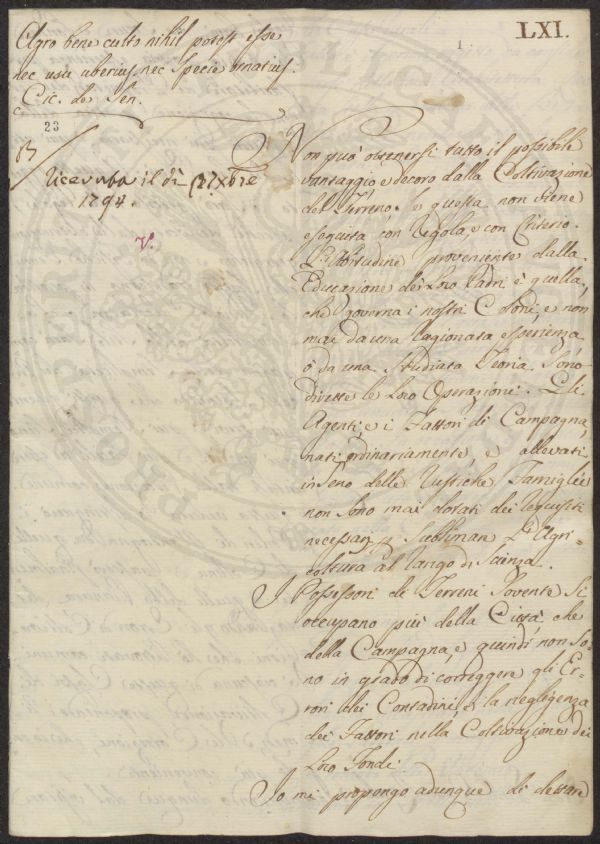 LXI.
1
Agro bene culto nihil potest esse
nec usu uberius, nec specie ornatius.
Cic. de Sen.
23
Ricevuta il dì 27 Xbre
1794.
V.
Non può ottenersi tutto il possibile
vantaggio, e decoro dalla Coltivazione
del Terreno, se questa non viene
eseguita con Regola, e con Criterio.
L'Abitudine proveniente dalla
Educazione dei Loro Padri è quella,
che governa i nostri Coloni, e non
mai da una ragionata esperienza
ò da una studiata Teoria sono
dirette le Loro Operazioni. Gli
Agenti, e i Fattori di Campagna,
nati ordinariamente, e allevati
in seno delle Rustiche Famiglie
non sono mai dotati dei requisiti
necessarj a Sublimare l'Agri-
coltura al rango di Scienza.
I Possessori de Terreni sovente si
occupano più della Città che
della Campagna, e quindi non so-
no in grado di correggere gli Er-
rori dei Contadini, e la negligenza
dei Fattori nella Coltivazione dei
Loro Fondi.
Io mi propongo adunque di dettare